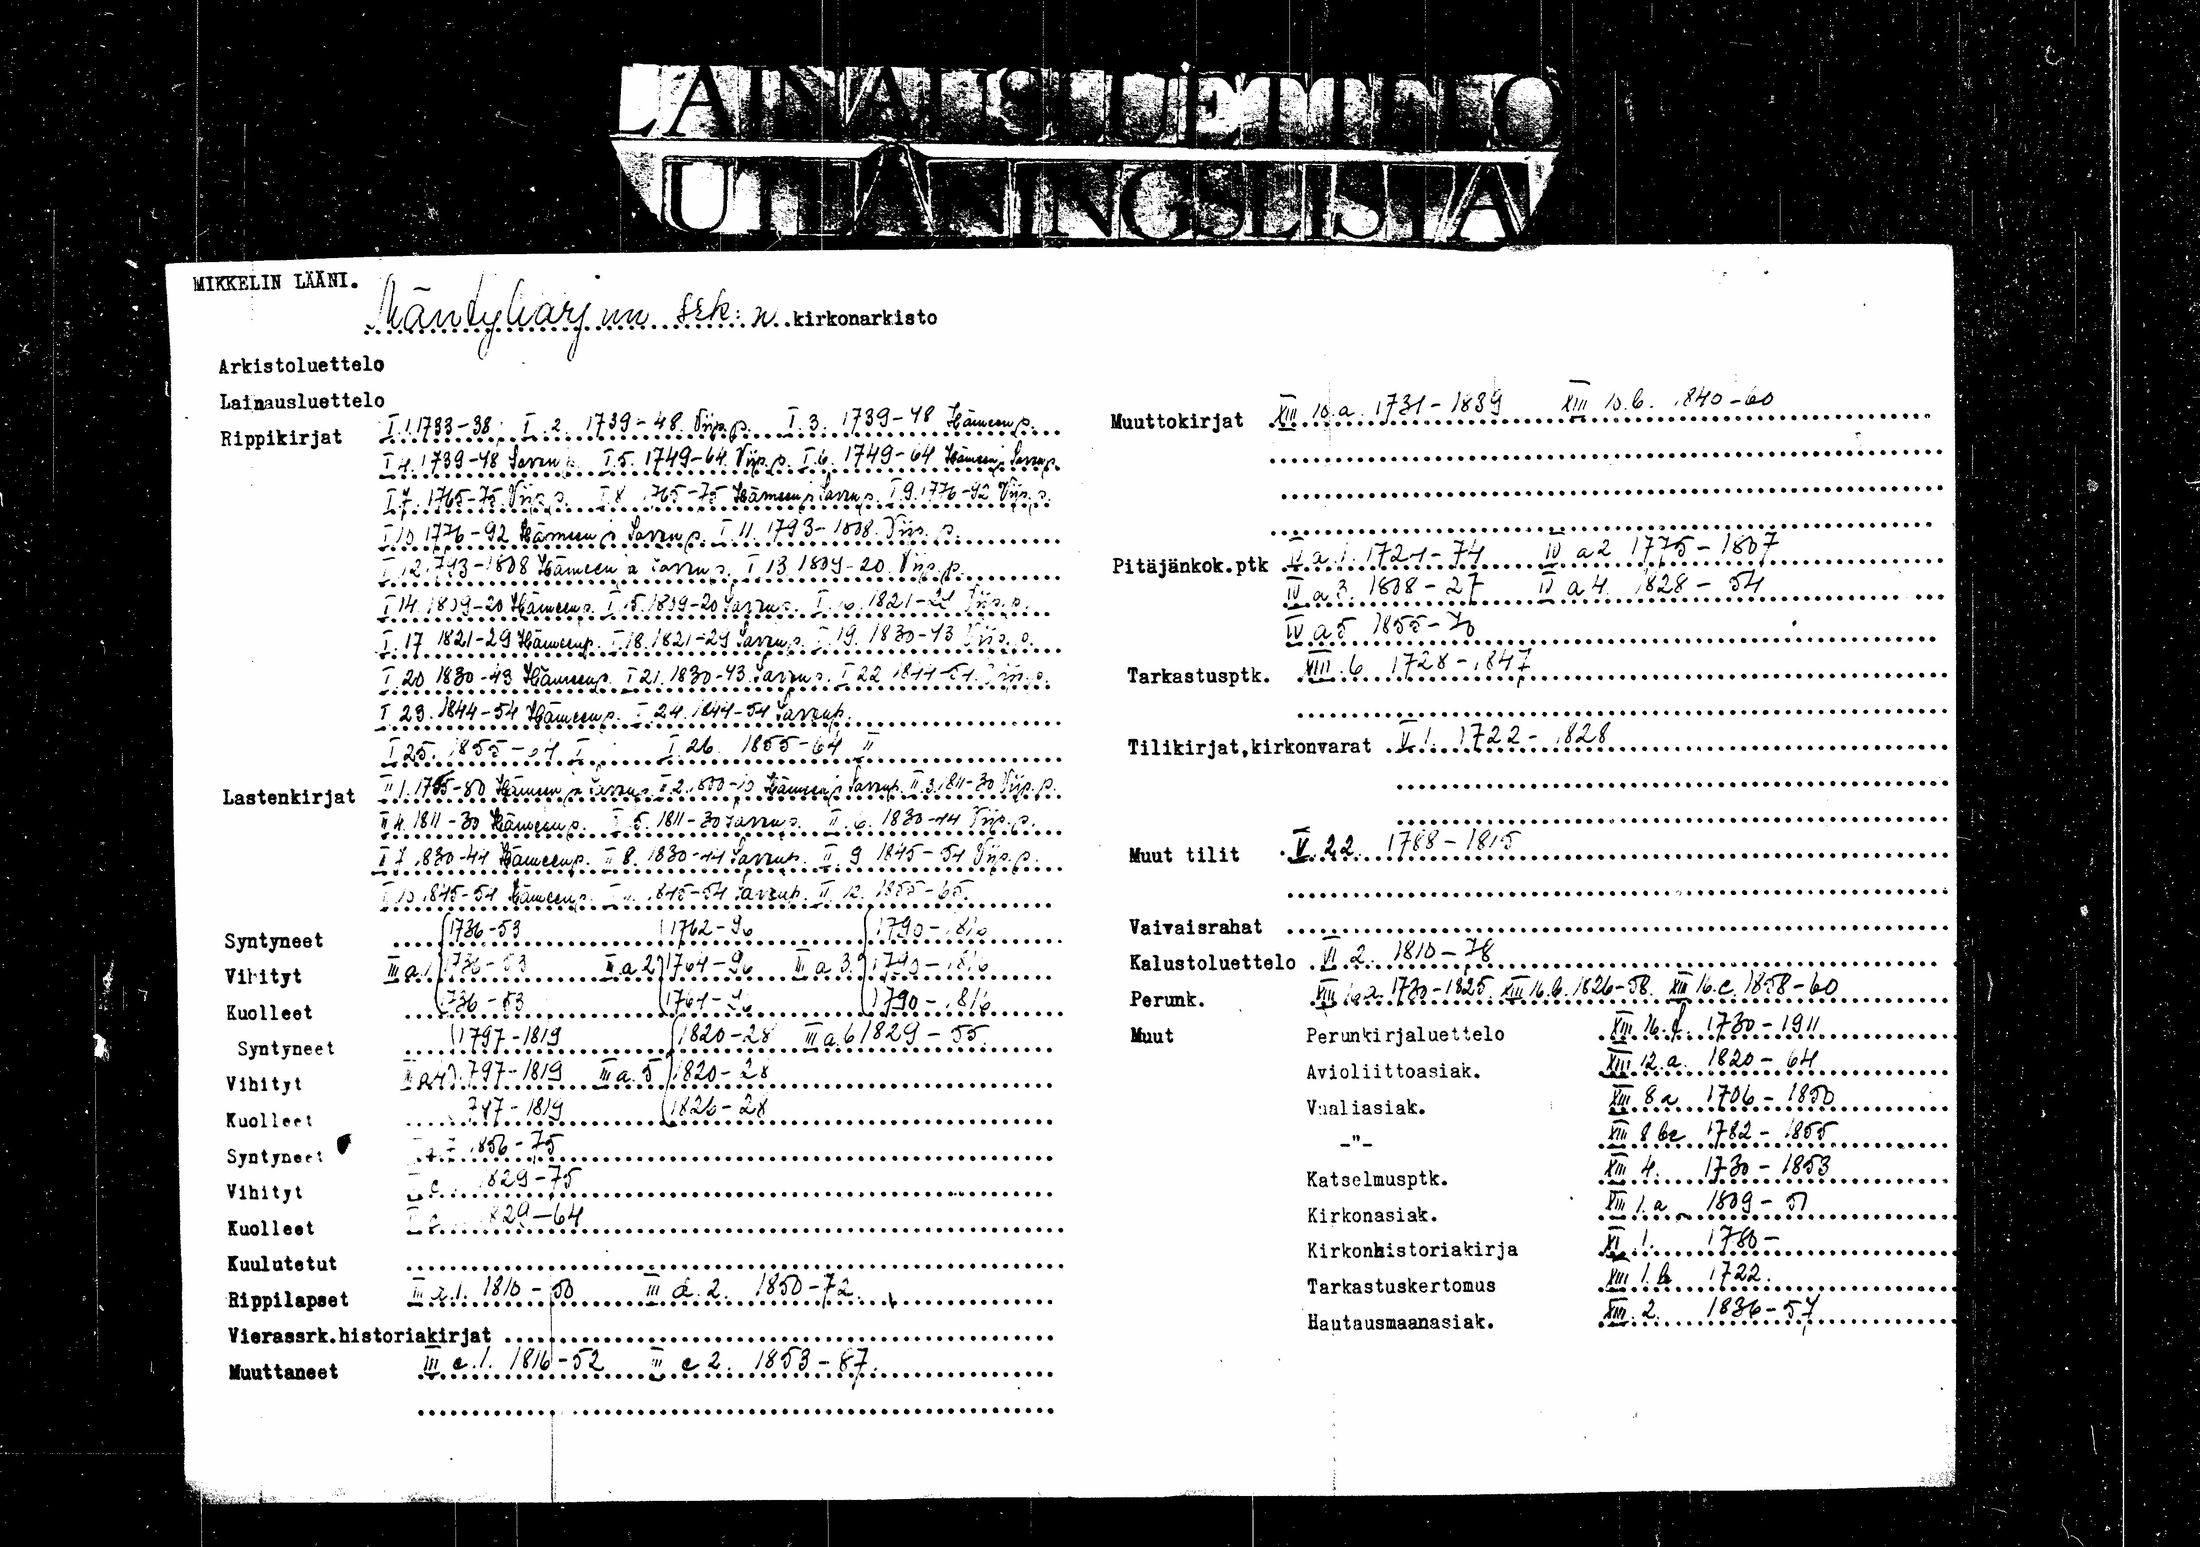 LAINAUSLUETTELO
UTLÅNINGSLISTA
MIKKELIN LÄÄNI.
Mäntyharjun srk:n kirkonarkisto
Arkistoluettelo
Lainausluettelo
Rippikirjat I.1. 1733-38 I.2. 1739-48 Viip.p. I.3. 1739-48 Hämeen p.
I 4. 1739-48 Savon p. I.5. 1749-64 Viip.p. I.6. 1749-64 Hämeen ja Savon p.
I 7. 1765-75 Viip.p. I 8. 1765-75 Hämeen ja Savon p. I 9. 1776-92 Viip.p.
I 10 1776-92 Hämeen ja Savon p. I 11. 1793-1808. Viip.p.
I 12. 1793-1808 Hämeen ja Savon p. I 13 1809-20. Viip.p.
I 14. 1809-20 Hämeen p. I 15. 1809-20 Savon p. I. 16. 1821-29 Viip.p.
I. 17 1821-29 Hämeen p. I 18. 1821-29 Savon p. I 19. 1830-43 Viip.p.
I. 20 1830-43 Hämeen p. I 21. 1830-43 Savon p. I 22 1844-54. Viip.p.
I 23. 1844-54 Hämeen p. I 24. 1844-54 Savon p.
I 25. 1855-64 I I. 26. 1855-64 II
Lastenkirjat II 1. 1765-80 Hämeen ja Savon p. II 2. 1800-10 Hämeen ja Savon p. II 3. 1811-30 Viip.p.
II 4. 1811-30 Hämeen p. II 5. 1811-30 Savon p. II. 6. 1830-44 Viip.p.
II 7. 1830-44 Hämeen p. II 8. 1830-44 Savon p. II. 9 1845-54 Viip.p.
II 10 1845-54 Hämeen p. II 11. 1845-54 Savon p. II. 12. 1855-65.
Syntyneet 1736-53 1762-96 1790-1816
Vihityt III a.1 1736-53 II a 2 1764-96 II a 3. 1790-1816
Kuolleet 1736-53 1764-96 1790-1816
Syntyneet 1797-1819 1820-28 III a.6 1829-55.
Vihityt III a 4 1797-1819 III a. 5 1820-28
Kuolleet 1797-1819 1826-28
Syntyneet a.7 1856-75
Vihityt 1829-75
Kuolleet 1829-64
Kuulutetut
Rippilapset 1. 1810-50 2. 1850-72.
Vierassrk.historiakirjat
Muuttaneet III c.1. 1816-52 II c 2. 1853-87.
Muuttokirjat XIII 10.a. 1731-1839 XIII 10.b. 1840-60
Pitäjänkok.ptk IV a.1. 1721-74 IV a 2 1775-1807
IV a 3. 1808-27 IV a 4. 1828-54
IV a 5 1855-70
Tarkastusptk. XIII.6. 1728-1847
Tilikirjat,kirkonvarat V.1. 1722-1828
Muut tilit V.22. 1788-1815
Vaivaisrahat
Kalustoluettelo VI.2. 1810-78
Perunk. XIII 16.a. 1730-1825. XIII 16.b. 1826-58. XIII 16.c. 1858-60
Muut Perunkirjaluettelo XIII. 16.d. 1730-1911
Avioliittoasiak. XIII 12.a. 1820-64
Vaaliasiak. XIII 8 a 1706-1850
-"- XIII 8 bc 1782-1855
Katselmusptk. XIII 4. 1730-1853
Kirkonasiak. XIII 1.a 1809-51
Kirkonhistoriakirja XI.1. 1780-
Tarkastuskertomus XIII 1.b 1722.
Hautausmaanasiak. XIII. 2. 1836-57